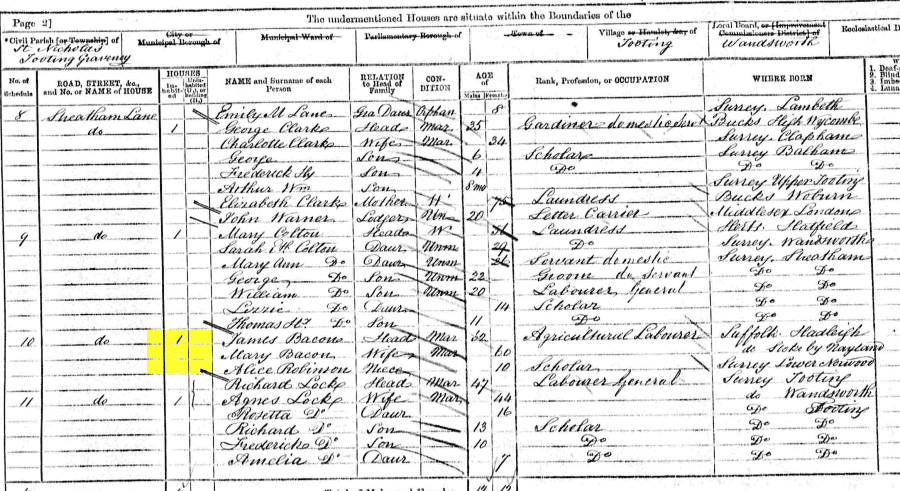 Page 2]
The undermentioned Houses are situate within the Boundaries of the
*Civil Parish [or Township] of
St Nicholas
Tooting Graveney
City or
Municipal Borough of
Municipal Ward of
Parliamentary Borough of
Town of
Village or Hamlet, &c., of
Tooting
Local Board, or [Improvement
Commissioners District] of
Wandsworth
Ecclesiastical D
No. of Schedule ROAD, STREET, &c., and No. or NAME of HOUSE HOUSES In-habited Uninhabited (U.), or Building (B.) NAME and Surname of each Person RELATION to Head of Family CON-DITION AGE of Males Females Rank, Profession, or OCCUPATION WHERE BORN
1. Deaf-
2. Blind
3. Imbe
4. Luna
8 Streatham Lane Emily M Lane Gra Daur Orphan 8 Surrey Lambeth
do 1 George Clark Head Mar 35 Gardiner domestic servt Bucks High Wycombe
Charlotte Clark Wife Mar 34 Surrey Clapham
George Son 6 Scholar Surrey Balham
Frederick Son 4 Do Do Do
Arthur Wm Son 8 mo Surrey Upper Tooting
Elizabeth Clark Mother W 75 Laundress Bucks Woburn
John Warner Lodger Un 20 Letter Carrier Middlesex London
9 do 1 Mary Colton Head W 51 Laundress Herts Hatfield
Sarah Colton Daur Unm 29 Do Surrey Wandsworth
Mary Ann Do Daur Unm 26 Servant domestic Surrey Streatham
George Do Son Unm 22 Groom do servant Do Do
William Do Son Unm 20 Labourer General Do Do
Lizzie Do Daur 14 Scholar Do Do
Thomas Hy Do Son 11 Do Do Do
10 do 1 James Bacon Head Mar 62 Agricultural Labourer Suffolk Hadleigh
Mary Bacon Wife Mar 60 do Stoke by Nayland
Alice Robinson Niece 10 Scholar Surrey Lower Norwood
11 do 1 Richard Lock Head Mar 47 Labourer General Surrey Tooting
Agnes Lock Wife Mar 44 do Wandsworth
Rosetta Do Daur 16 Do Tooting
Richard Do Son 13 Scholar Do Do
Frederick Do Son 10 Do Do Do
Amelia Do Daur 7 Do Do Do